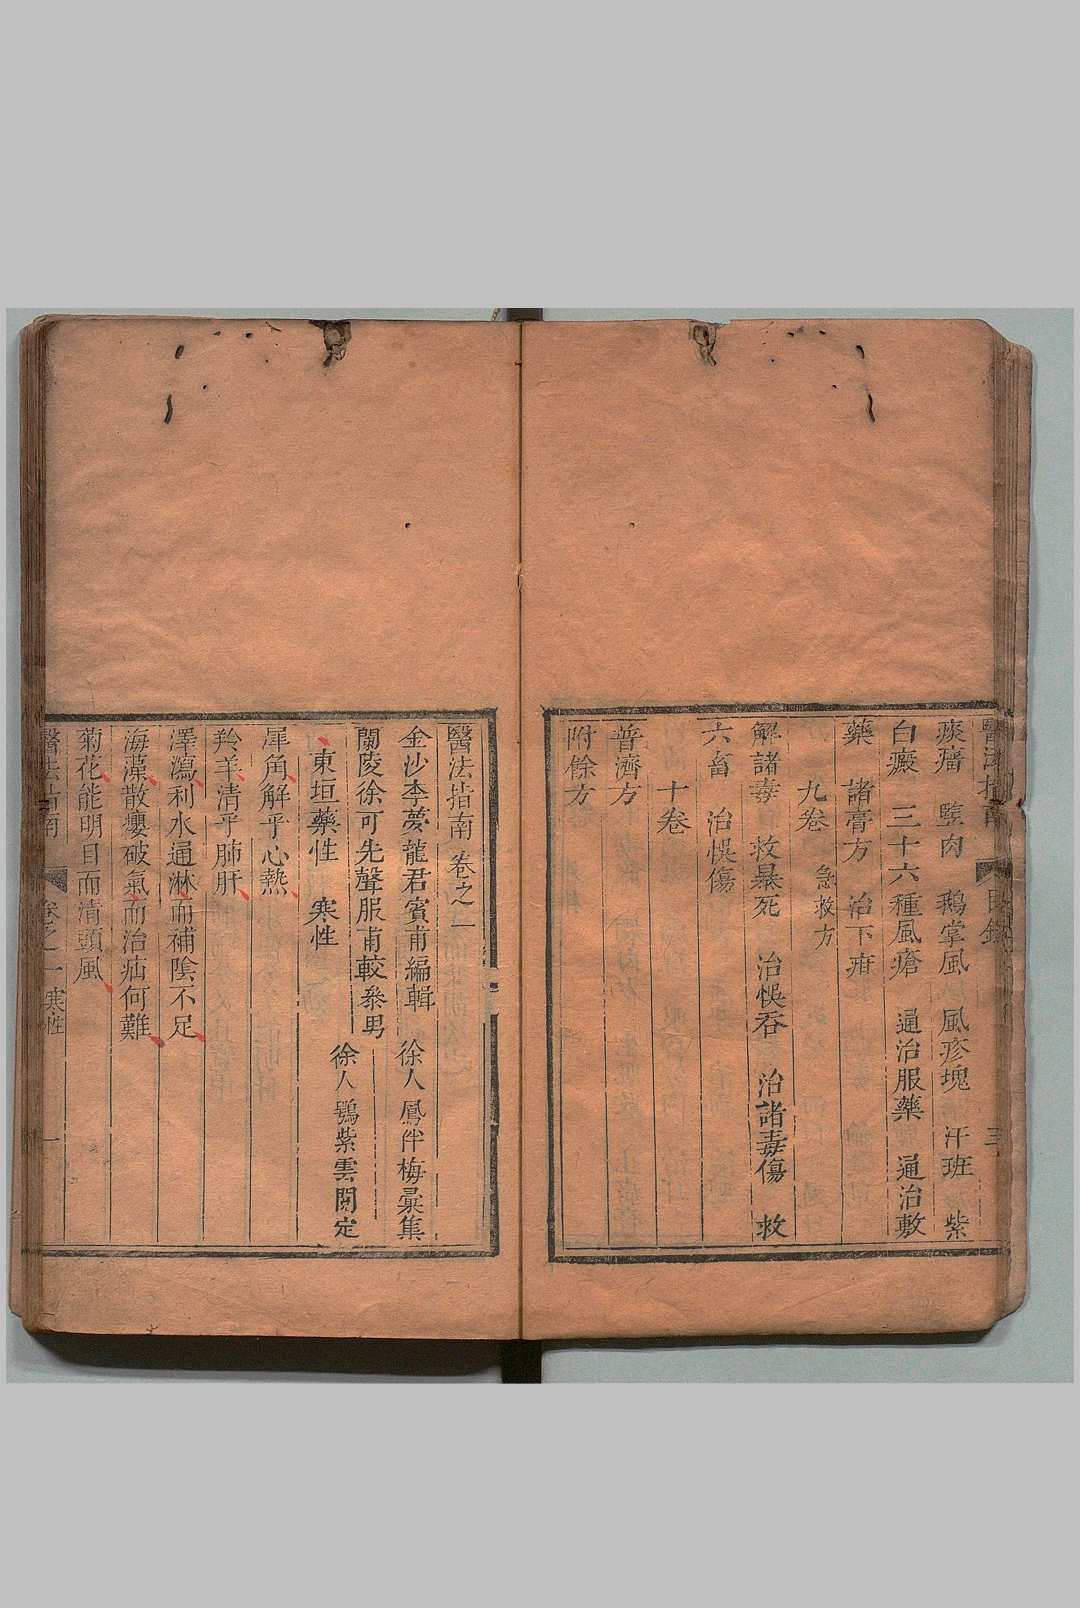 痰瘤　瘜肉　鵝掌風　風疹塊　汗班　紫
白癜　三十六種風瘡　通治服藥　通治敷
藥　諸膏方　治下疳
九卷　急救方
解諸毒　救暴死　治悞吞　治諸毒傷　救
六畜　治悞傷
十卷
普濟方
附餘方
醫法指南　目錄　三
醫法指南　卷之一
金沙李夢龍君賓甫編輯　徐人鳳伴梅彙集
蘭陵徐可先聲服甫較叅男
徐人鶚紫雲閱定
東垣藥性　寒性
犀角解乎心熱
羚羊清乎肺肝
澤瀉利水通淋而補陰不足
海藻散癭破氣而治疝何難
菊花能明目而清頭風
醫法指南　卷之一寒性　一